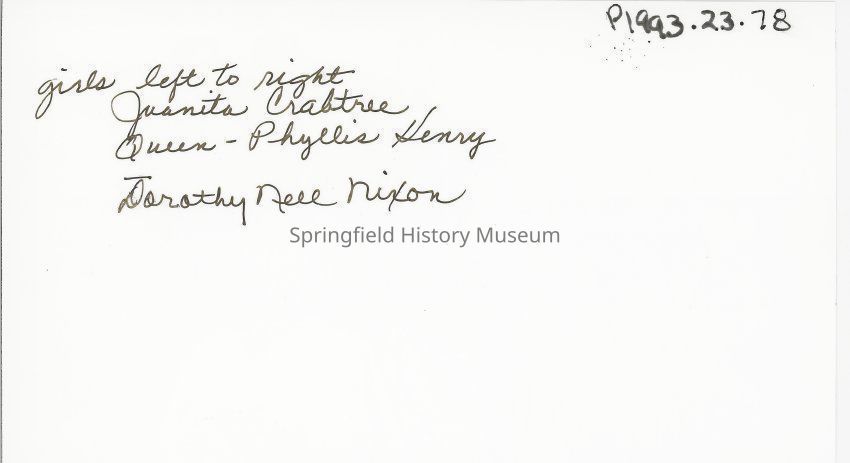 P1993.23.78
girls left to right
Juanita Crabtree
Queen - Phyllis Henry
Dorothy Nell Nixon
Springfield History Museum